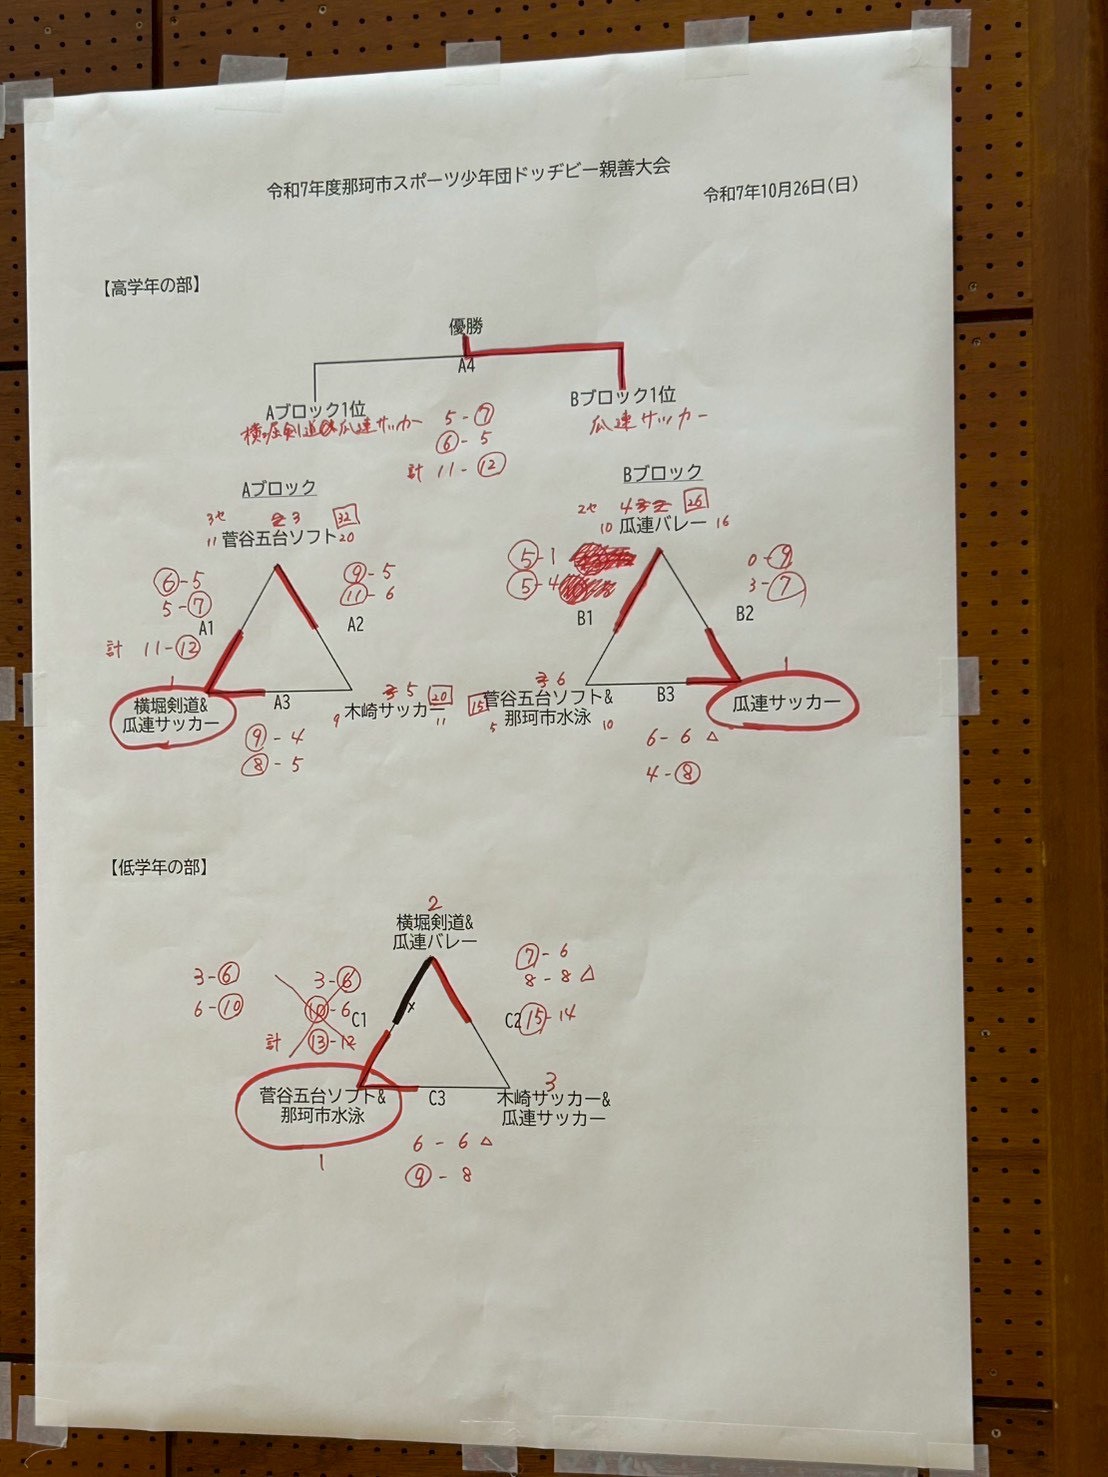 令和7年度那珂市スポーツ少年団ドッヂビー親善大会
令和7年10月26日(日)
【高学年の部】
優勝
A4
Aブロック1位
横堀剣道&瓜連サッカー
5-⑦
⑥-5
計 11-⑫
Bブロック1位
瓜連サッカー
Aブロック
3セ 3 32
11 菅谷五台ソフト 20
⑥-5
5-⑦
A1
計 11-⑫
⑨-5
⑪-6
A2
1
横堀剣道&
瓜連サッカー
A3
⑨-4
⑧-5
5 20
木崎サッカー
9 11
Bブロック
2セ 4 26
10 瓜連バレー 16
⑤-1
⑤-4
B1
0-⑨
3-⑦
B2
6
15
菅谷五台ソフト&
那珂市水泳
5 10
B3
6-6 △
4-⑧
1
瓜連サッカー
【低学年の部】
2
横堀剣道&
瓜連バレー
3-⑥
6-⑩
3-⑥
⑩-6
計 ⑬-12
C1
⑦-6
8-8 △
C2
⑮-14
菅谷五台ソフト&
那珂市水泳
1
C3
6-6 △
⑨-8
3
木崎サッカー&
瓜連サッカー